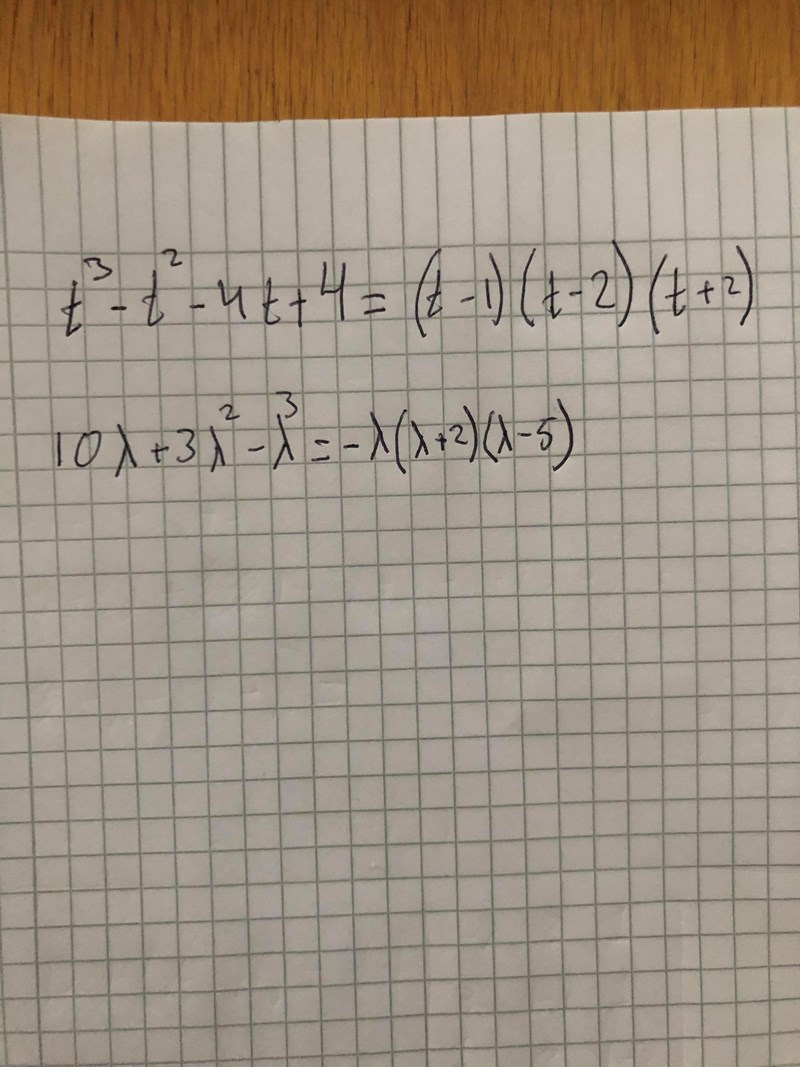 t³-t²-4t+4=(t-1)(t-2)(t+2)
10λ+3λ²-λ³=-λ(λ+2)(λ-5)